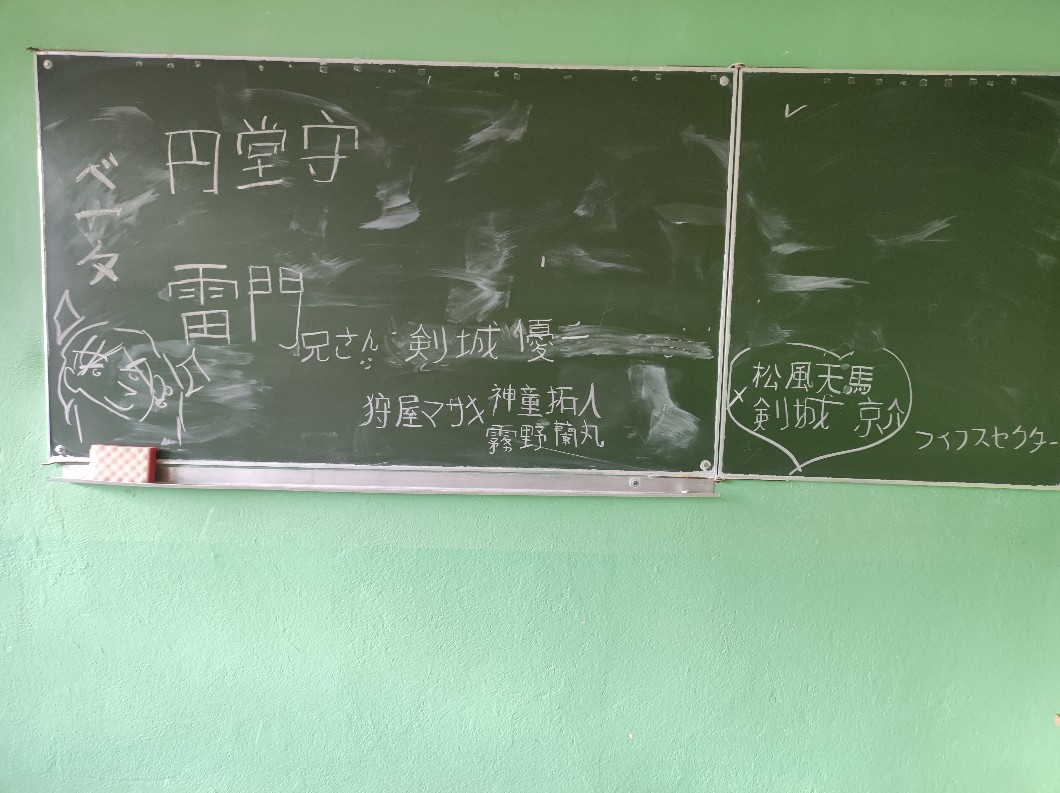 ベータ
円堂守
雷門
兄さん 剣城 優一
狩屋マサキ
神童拓人
霧野蘭丸
松風天馬
×
剣城 京介
フィフスセクター